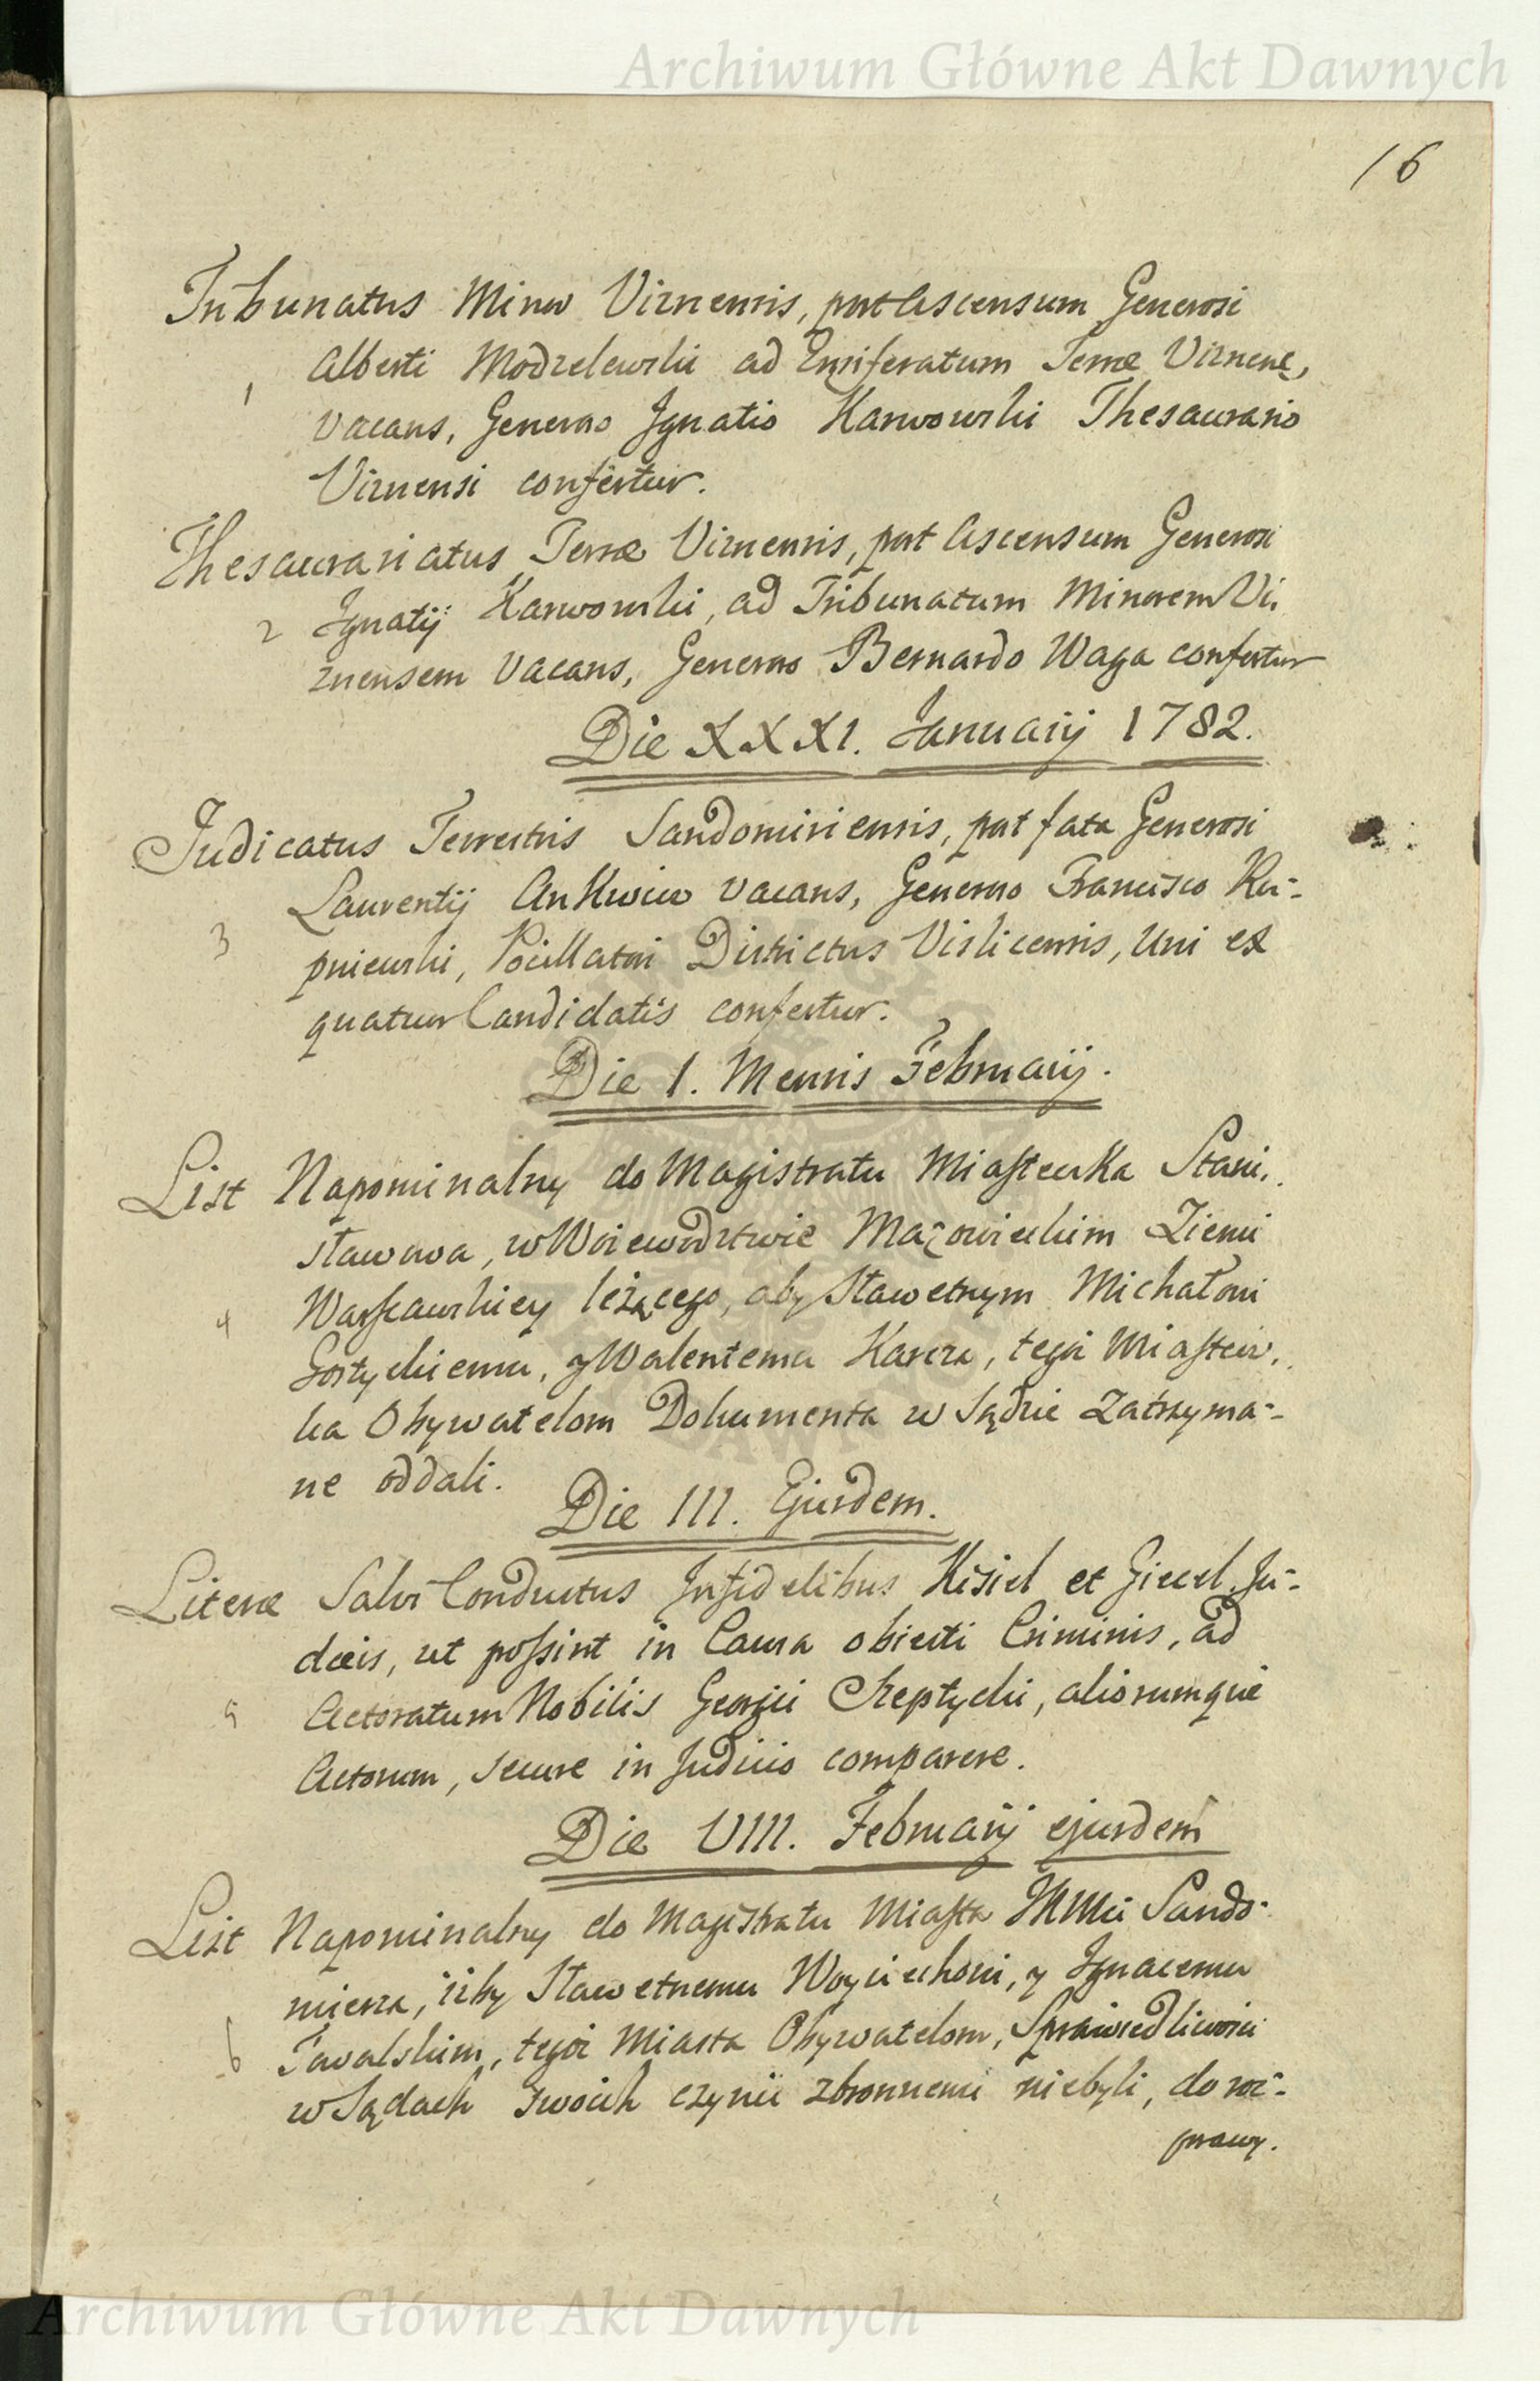 Archiwum Główne Akt Dawnych
16
Tribunatus Minor Viznensis, post Ascensum Generosi
Alberti Modzelewski ad Ensiferatum Terræ Viznens,
1
vacans, Generoso Ignatio Karwowski Thesaurario
Viznensi confertur.
Thesaurariatus Terræ Viznensis, post Ascensum Generosi
2 Ignatij Karwowski, ad Tribunatum Minorem Vi,
znensem vacans, Generoso Bernardo Waga confertur
Die XXXI. Januarij 1782.
Judicatus Terrestris Sandomiriensis, post fata Generosi
Laurentij Ankwicz vacans, Generoso Francisco Ru-
3
pniewski, Pocillatori Districtus Vislicensis, Uni ex
quatuor Candidatis confertur.
Die 1. Mensis Februarij.
List Napominalny do Magistratu Miasteczka Stani,
sławowa, w Woiewodztwie Mazowieckim Ziemi
4 Warszawskiey leżącego, aby Sławetnym Michałowi
Gostyckiemu, y Walentemu Karcza, tegoż Miastecz,
ka Obywatelom Dokumenta w Sądzie zatrzyma-
ne oddali.
Die III. Ejusdem.
Literæ Salvi Conductus Infidelibus Kisiel et Giecel Ju-
dæis, ut possint in Causa obiecti Criminis, ad
5 Actoratum Nobilis Georgii Szeptycki, aliorumque
Actorum, secure in Judicio comparere.
Die VIII. Februarij ejusdem
List Napominalny do Magistratu Miasta JKMci Sando-
mierza, iżby Sławetnemu Woyciechowi, y Ignacemu
6 Tawalskim, tegoż Miasta Obywatelom, Sprawiedliwości
w Sądach swoich czynić zbronnemi niebyli, do roz-
prawy.
Archiwum Główne Akt Dawnych